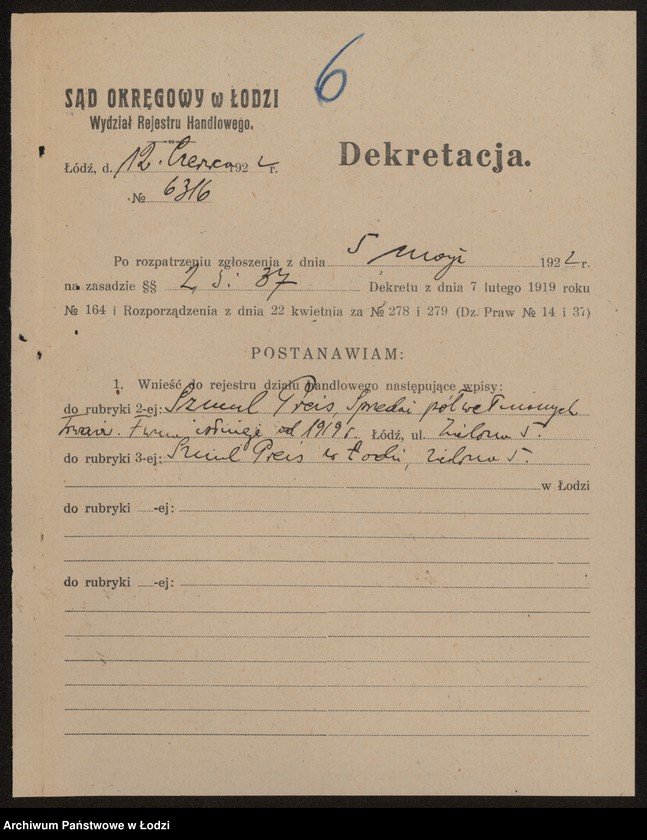 6
SĄD OKRĘGOWY w ŁODZI
Wydział Rejestru Handlowego.
Łódź, d. 12. Czerwca 1922 r.
№ 6316
Dekretacja.
Po rozpatrzeniu zgłoszenia z dnia 5 maja 1922 r.
na zasadzie §§ 2 i 37 Dekretu z dnia 7 lutego 1919 roku
№ 164 i Rozporządzenia z dnia 22 kwietnia za № 278 i 279 (Dz. Praw № 14 i 37)
POSTANAWIAM:
1. Wnieść do rejestru działu handlowego następujące wpisy:
do rubryki 2-ej: Szmul Preis, Sprzedaż półwełnianych
towar. Firma istnieje od 1919 r. Łódź, ul. Zielona 5.
do rubryki 3-ej: Szmul Preis w Łodzi, Zielona 5.
w Łodzi
do rubryki -ej:
do rubryki -ej:
Archiwum Państwowe w Łodzi